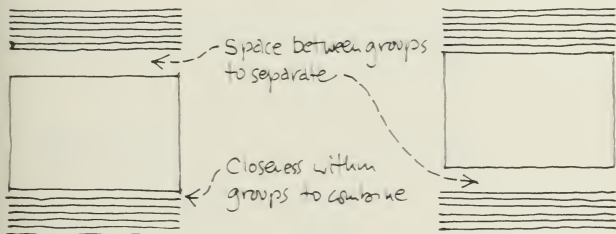 Space between groups
to separate
Closeness within
groups to combine